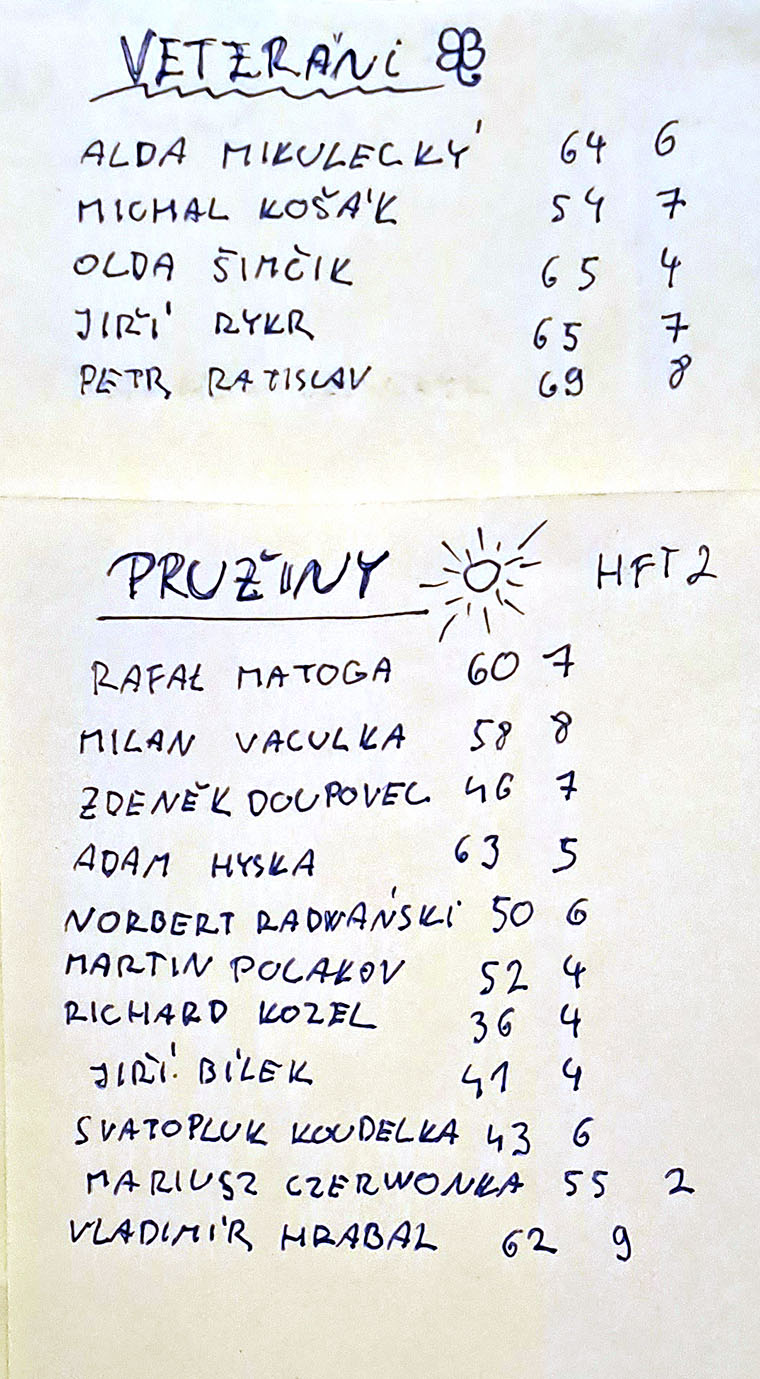 VETERÁNI
ALDA MIKULECKÝ 64 6
MICHAL KOŠÁK 54 7
OLDA ŠIMČIK 65 4
JIŘÍ RYKR 65 7
PETR RATISLAV 69 8
PRUŽINY HFT 2
RAFAŁ MATOGA 60 7
MILAN VACULKA 58 8
ZDENĚK DOUPOVEC 46 7
ADAM HYSKA 63 5
NORBERT RADWAŃSKI 50 6
MARTIN POLAKOV 52 4
RICHARD KOZEL 36 4
JIŘÍ BÍLEK 41 4
SVATOPLUK KOUDELKA 43 6
MARIUSZ CZERWONKA 55 2
VLADIMÍR HRABAL 62 9